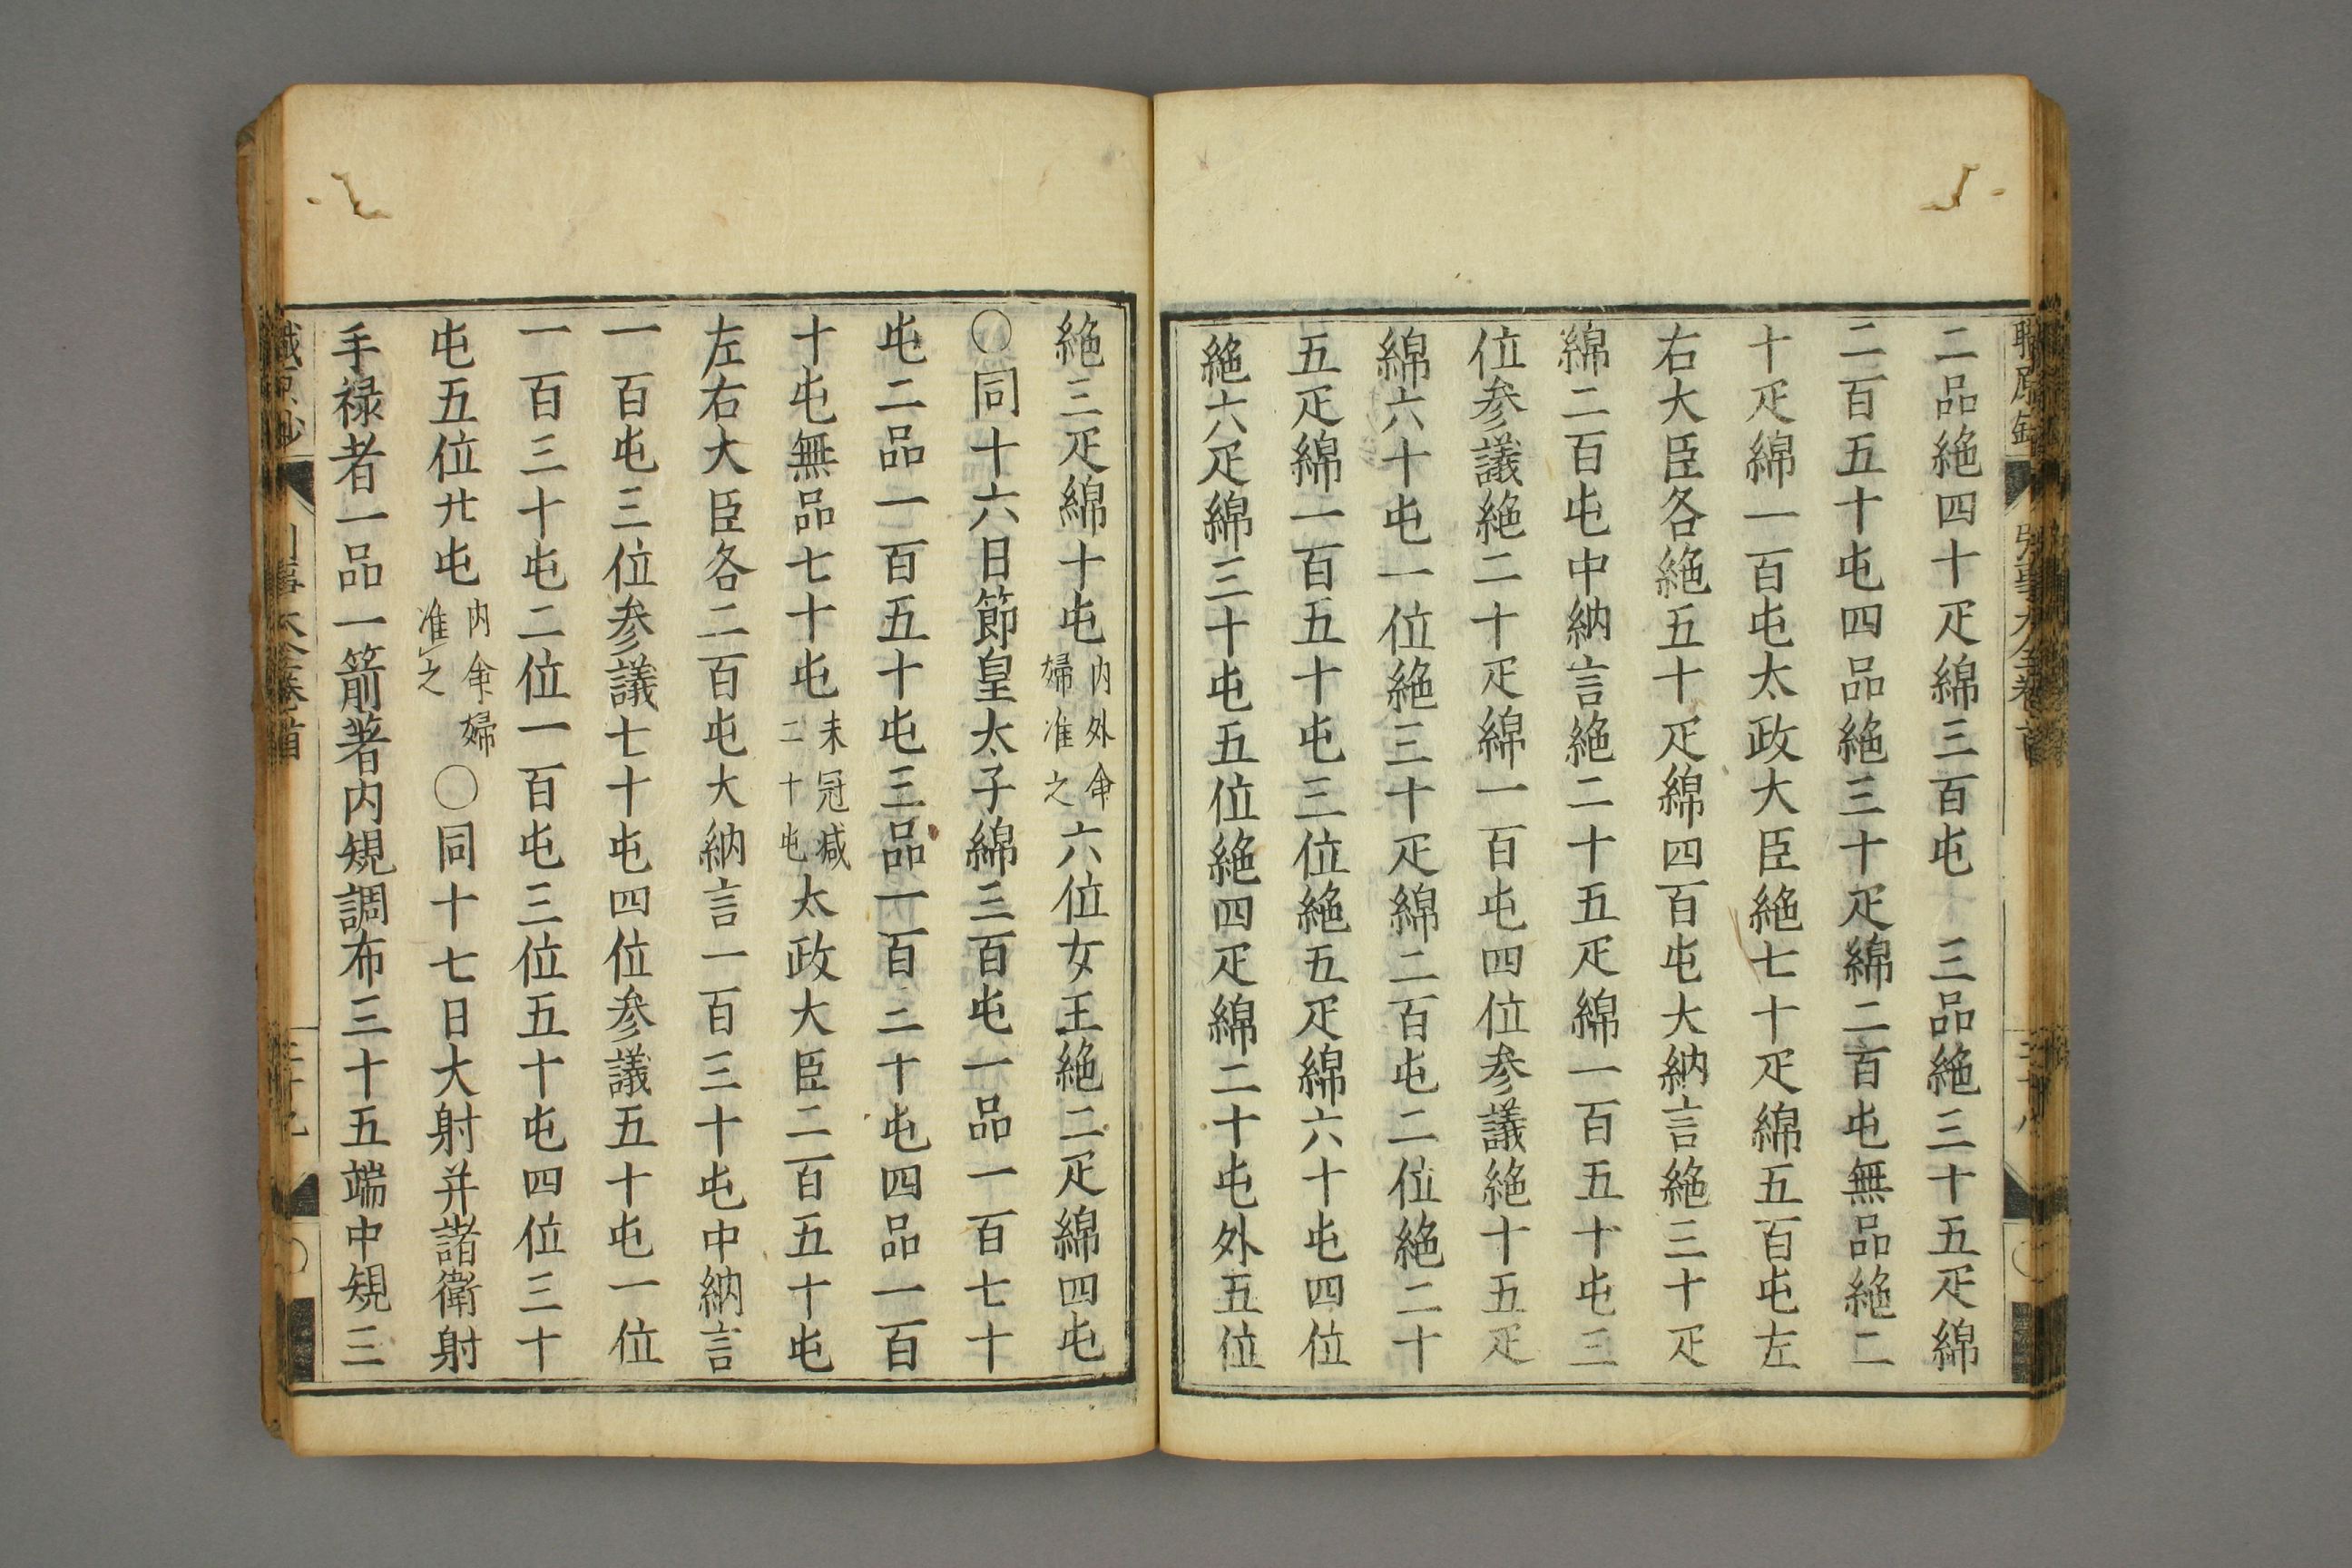 二品絁四十疋綿三百屯　三品絁三十五疋綿
二百五十屯四品絁三十疋綿二百屯無品絁二
十疋綿一百屯太政大臣絁七十疋綿五百屯左
右大臣各絁五十疋綿四百屯大納言絁三十疋
綿二百屯中納言絁二十五疋綿一百五十屯三
位参議絁二十疋綿一百屯四位参議絁十五疋
綿六十屯一位絁三十疋綿二百屯二位絁二十
五疋綿一百五十屯三位絁五疋綿六十屯四位
絁六疋綿三十屯五位絁四疋綿二十屯外五位
絁三疋綿十屯内外命婦准之六位女王絁二疋綿四屯
〇同十六日節皇太子綿三百屯一品一百七十
屯二品一百五十屯三品一百三十屯四品一百
十屯無品七十屯未冠減二十屯太政大臣二百五十屯
左右大臣各二百屯大納言一百三十屯中納言
一百屯三位参議七十屯四位参議五十屯一位
一百三十屯二位一百屯三位五十屯四位三十
屯五位廿屯内命婦准之〇同十七日大射并諸衛射
手禄者一品一箭著内規調布三十五端中規三